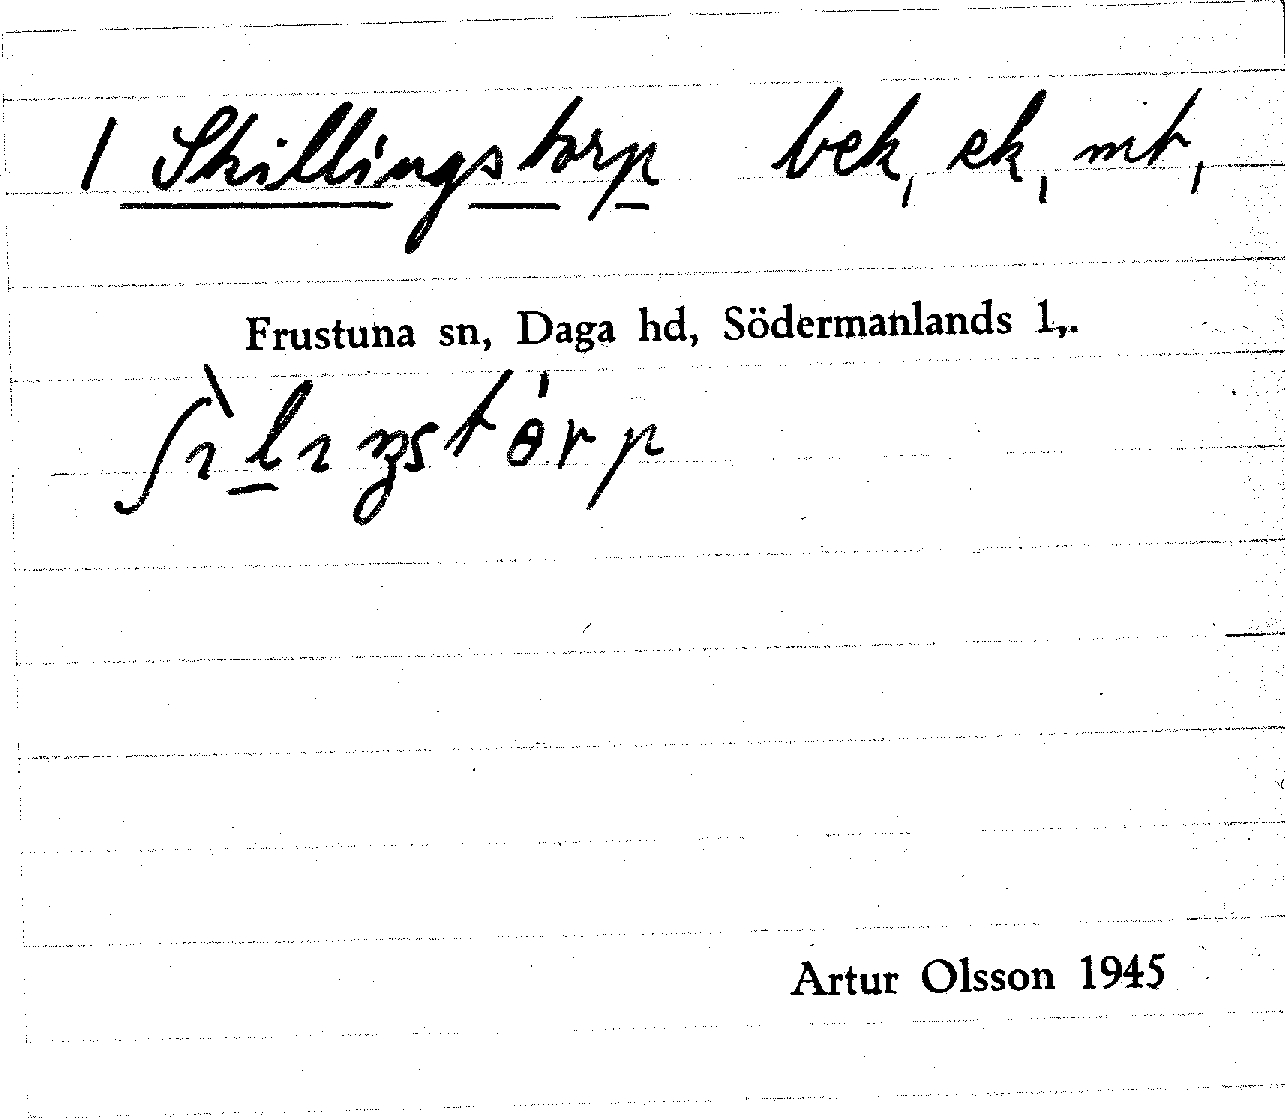 1 Skillingstorp bek, ek, mt,
Frustuna sn, Daga hd, Södermanlands l,.
ʃı̀lıŋstɵ́rp
Artur Olsson 1945